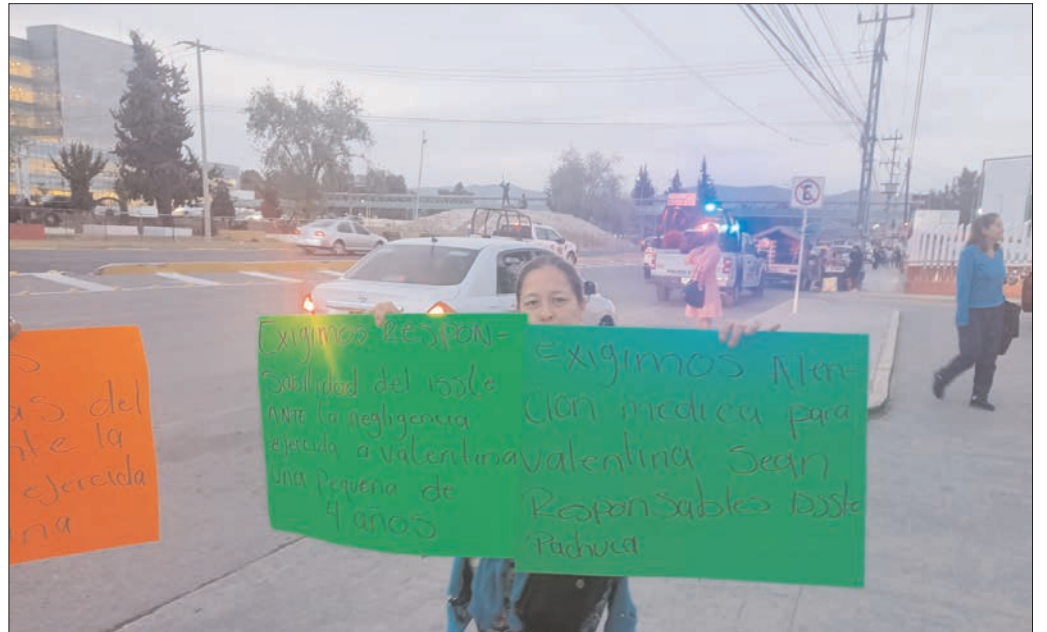 S
as del
nte la
ejercida
ina
Exigimos RESPON-
sabilidad del issste
ANTE la neglígencia
ejercida a valentina
una pequeña de
4 años
Exigimos Aten-
ción medica para
valentina Sean
Responsables ISSSte
Pachuca
E